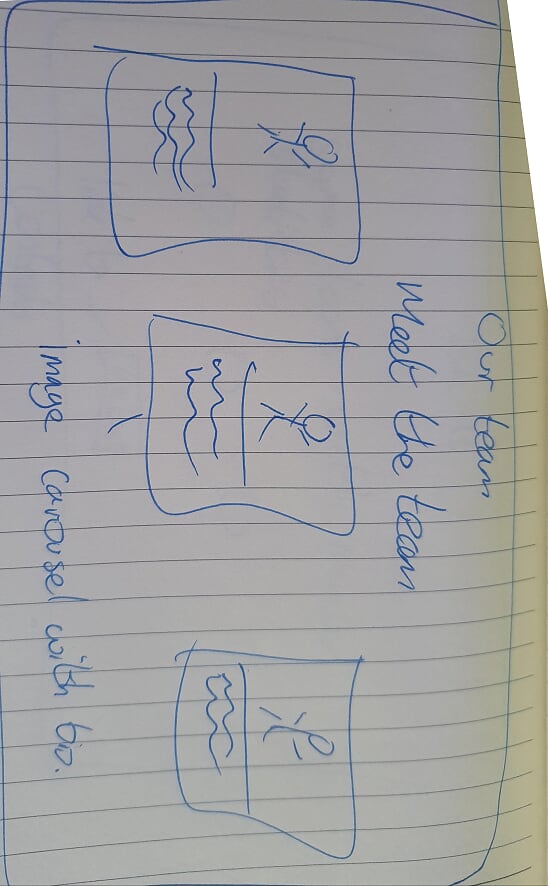 Our team
Meet the team
image carousel with bio.